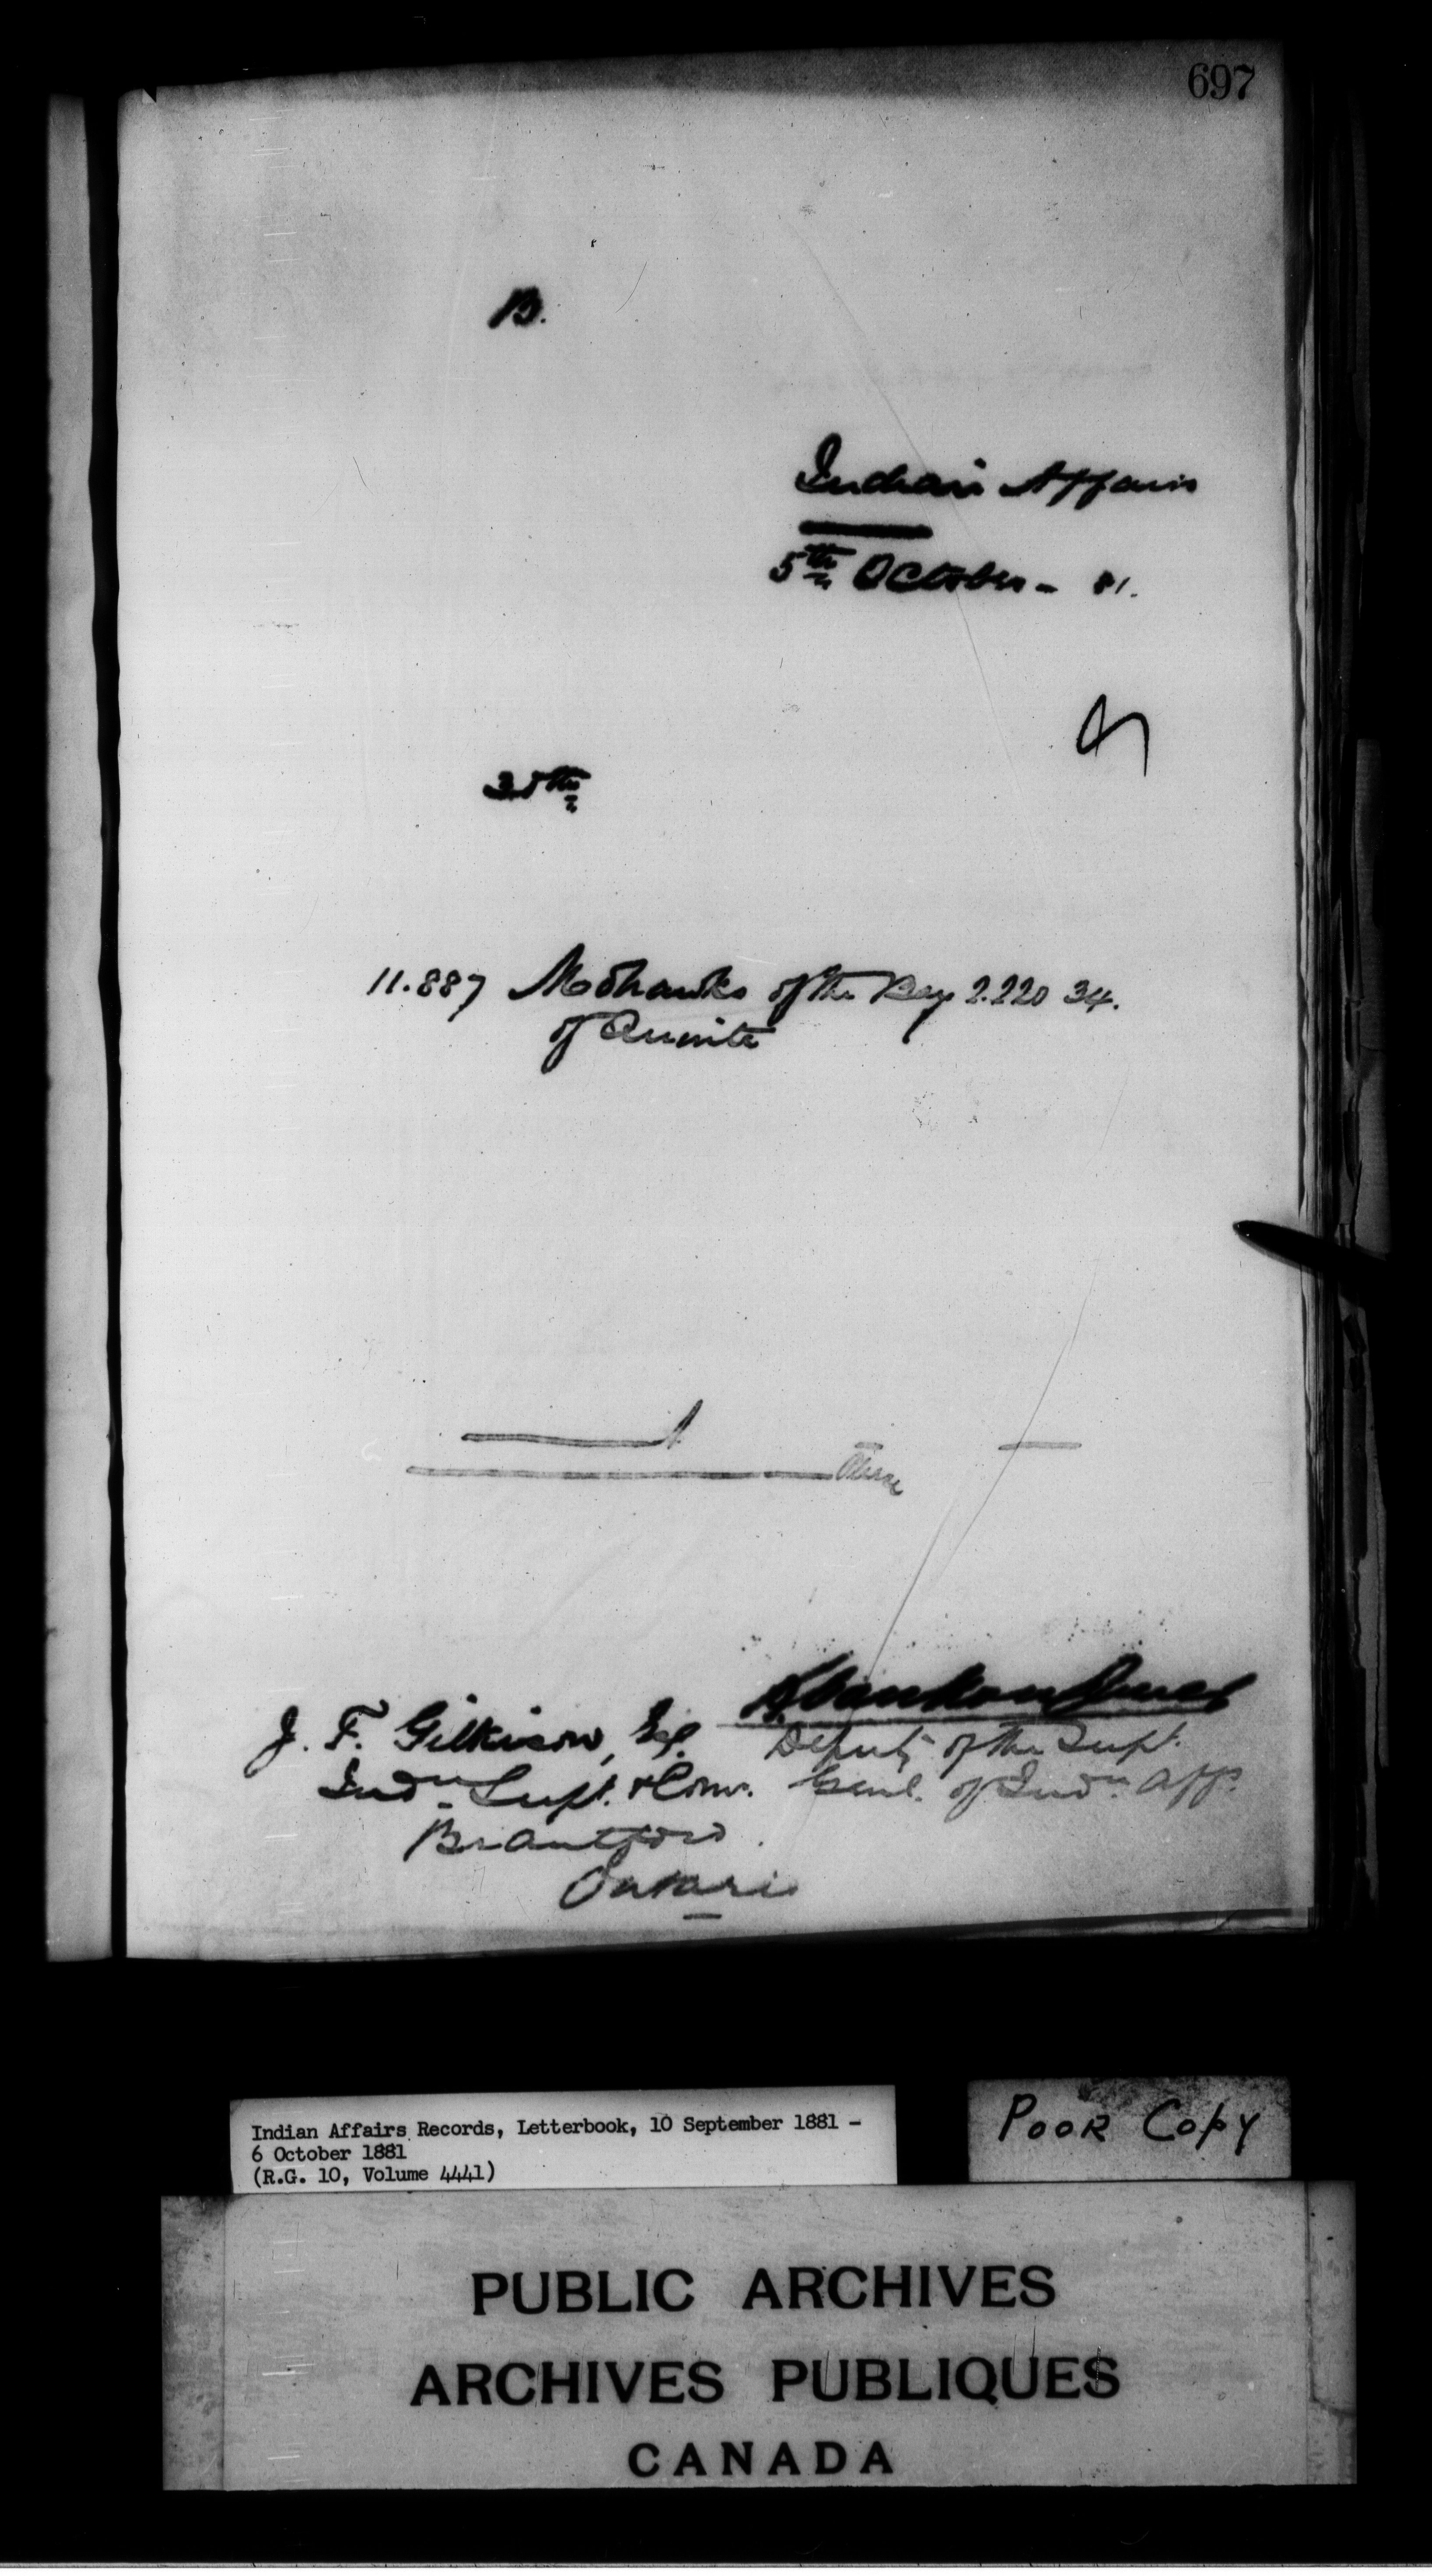 697
B.
Indian Affairs
5th October - 81.
30th
11.887 Mohawks of the Bay 2.220 34.
of Quinte
J. F. Gilkison, Esq.
Indn Supt. & Comr.
Brantford.
Ontario
L. Vankoughnet
Deputy of the Supt.
Genl. of Indn Affs.
Indian Affairs Records, Letterbook, 10 September 1881 -
6 October 1881
(R.G. 10, Volume 4441)
POOR COPY
PUBLIC ARCHIVES
ARCHIVES PUBLIQUES
CANADA